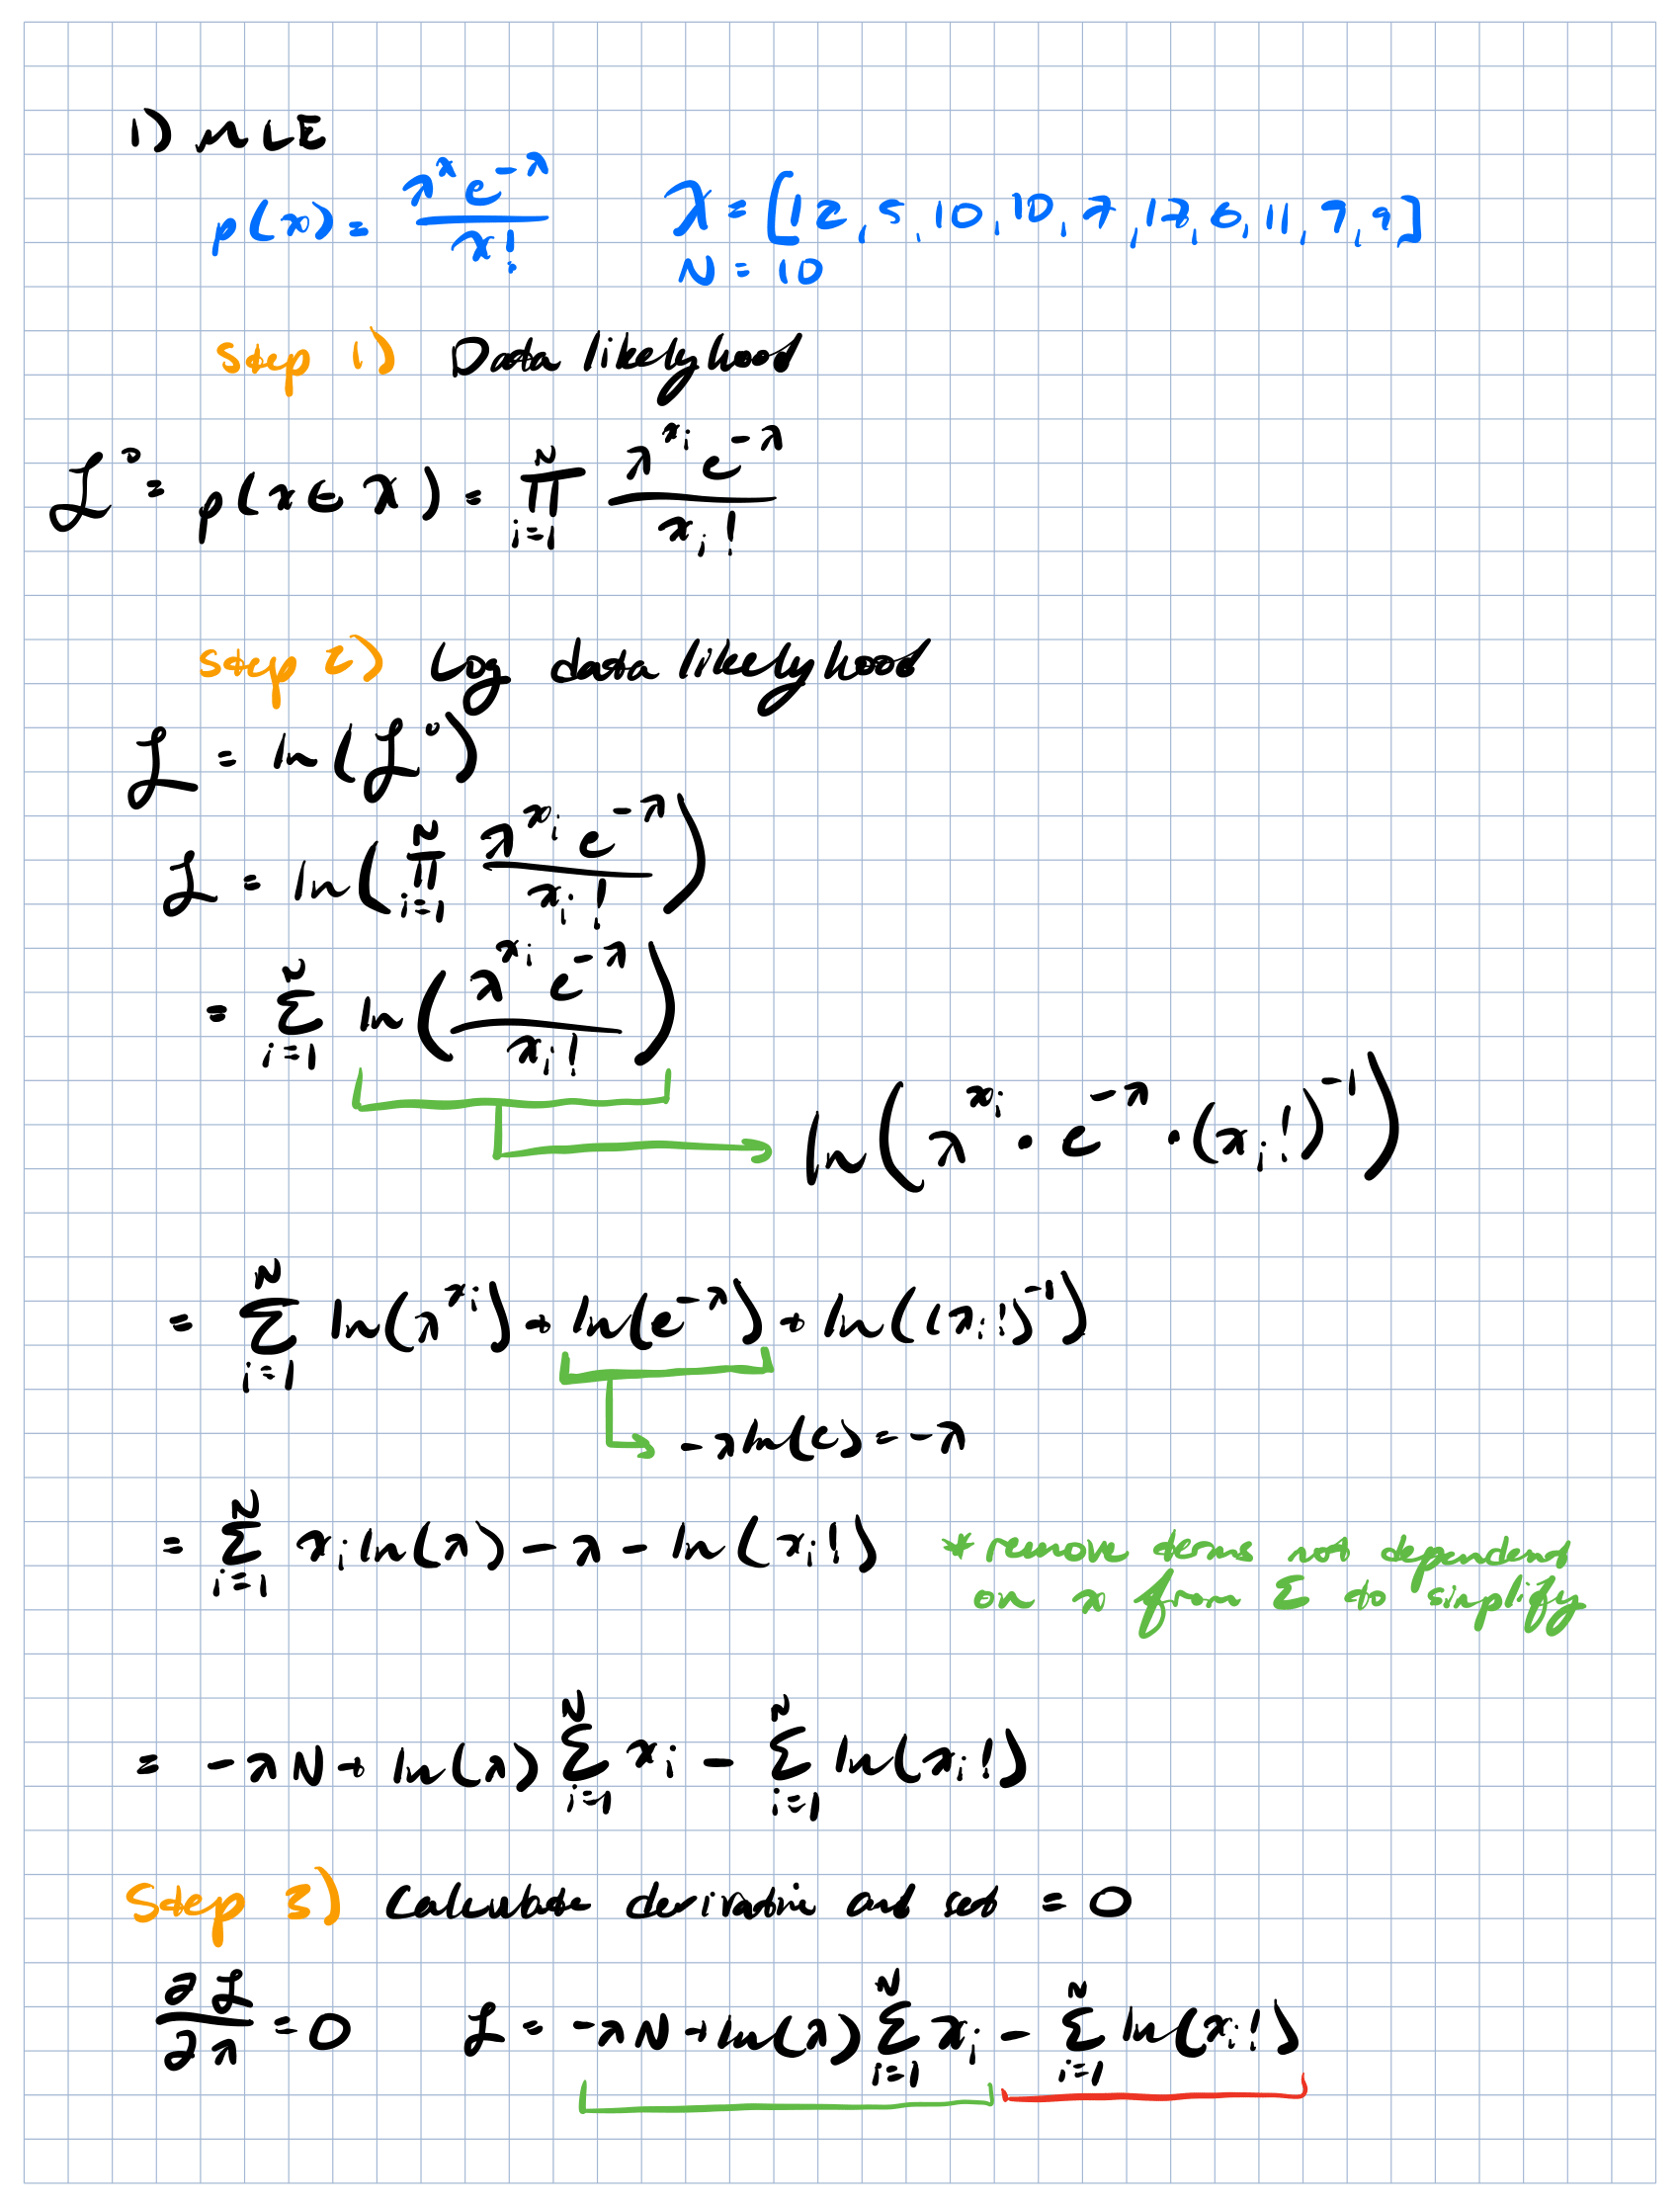 1) MLE
p(x) = λ^x e^-λ / x!    X = [12, 5, 10, 10, 7, 12, 6, 11, 7, 9]
N = 10
Step 1) Data likelyhood
ℒ° = p(x ∈ X) = ∏_{i=1}^{N} λ^{x_i} e^-λ / x_i!
Step 2) Log data likelyhood
ℒ = ln(ℒ°)
ℒ = ln(∏_{i=1}^{N} λ^{x_i} e^-λ / x_i!)
= Σ_{i=1}^{N} ln(λ^{x_i} e^-λ / x_i!)
ln(λ^{x_i} · e^-λ · (x_i!)^-1)
= Σ_{i=1}^{N} ln(λ^{x_i}) + ln(e^-λ) + ln((x_i!)^-1)
-λ ln(e) = -λ
= Σ_{i=1}^{N} x_i ln(λ) - λ - ln(x_i!)    * remove terms not dependent
on x from Σ to simplify
= -λN + ln(λ) Σ_{i=1}^{N} x_i - Σ_{i=1}^{N} ln(x_i!)
Step 3) Calculate derivative and set = 0
∂ℒ/∂λ = 0    ℒ = -λN + ln(λ) Σ_{i=1}^{N} x_i - Σ_{i=1}^{N} ln(x_i!)